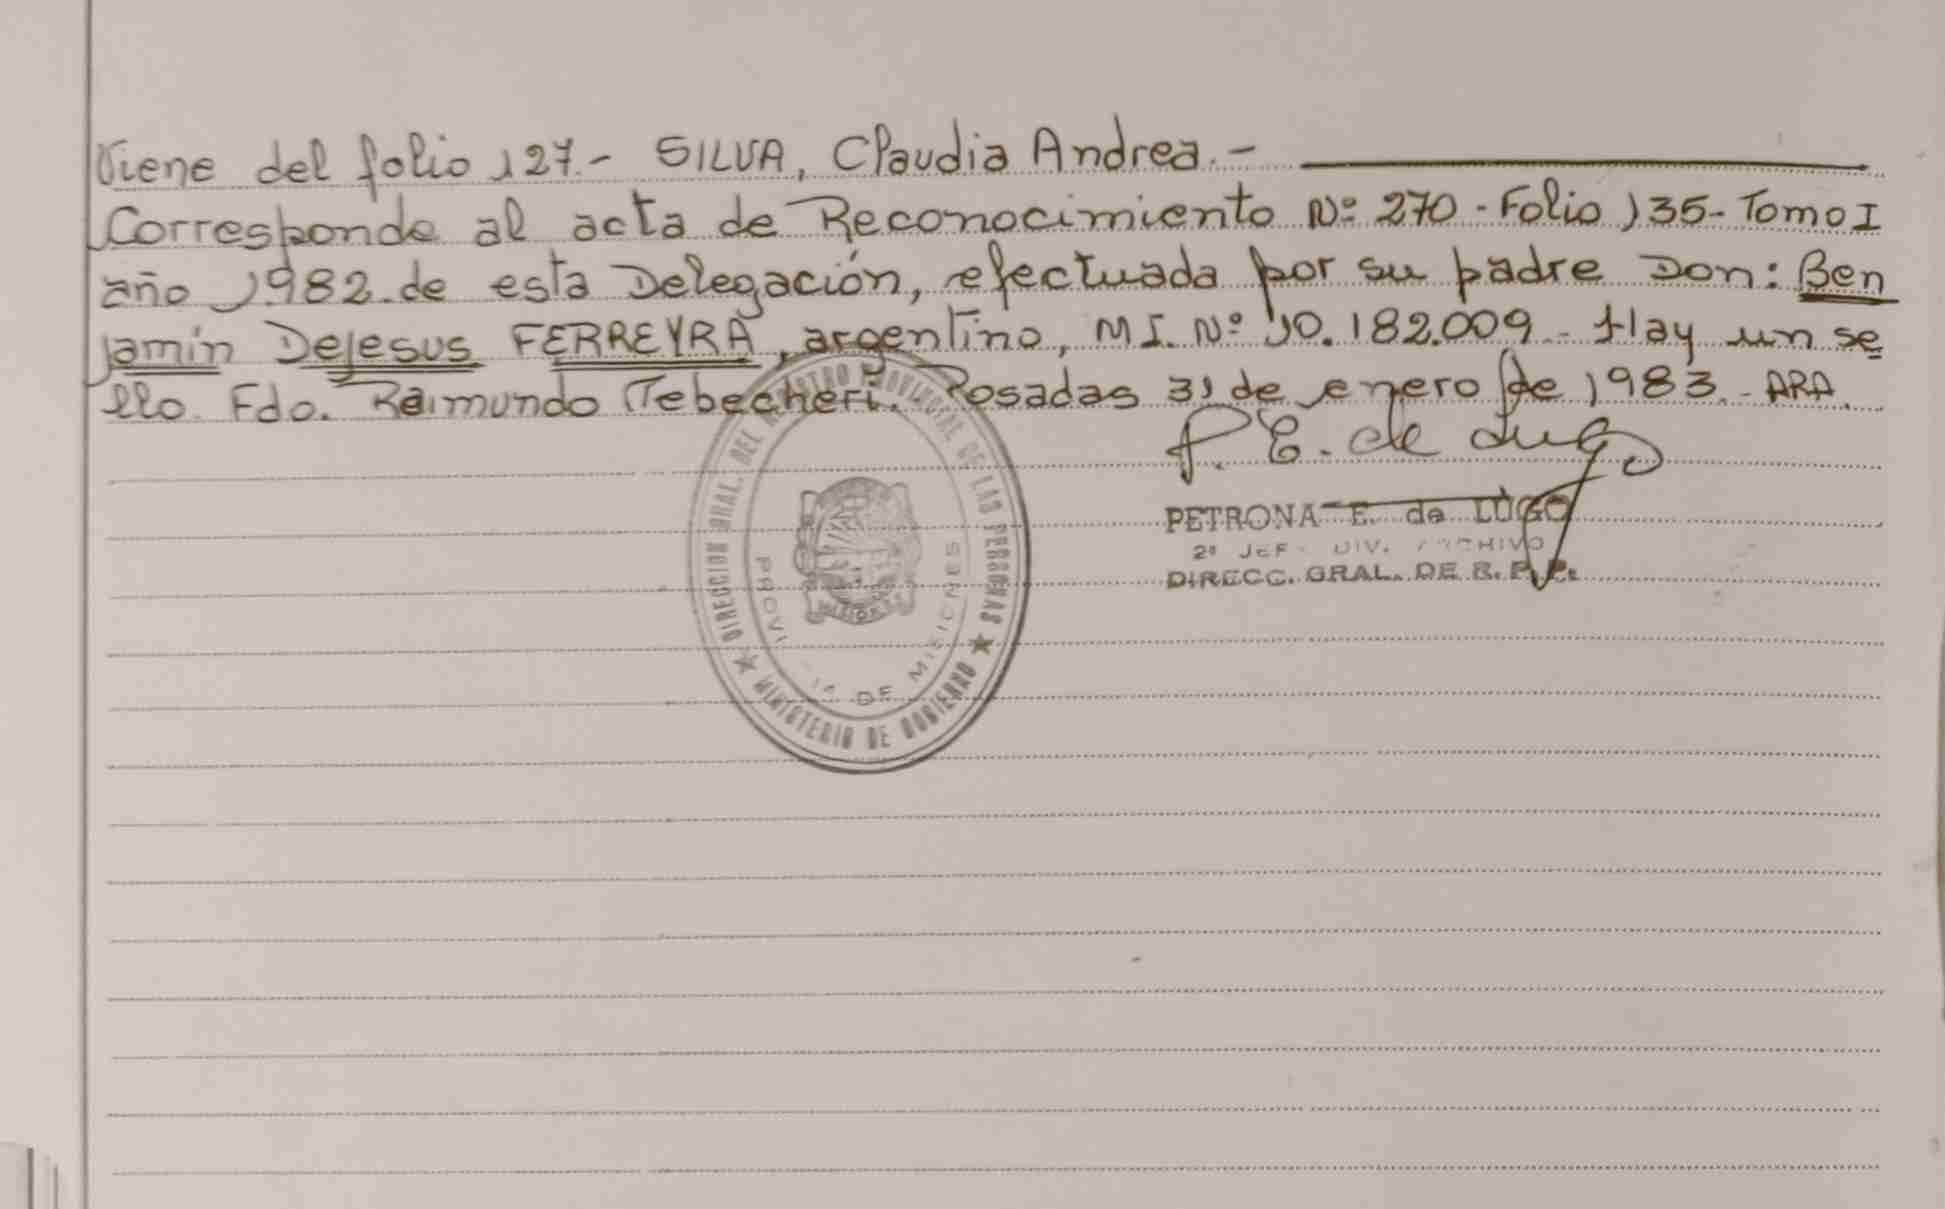 Viene del folio 127.- SILVA, Claudia Andrea.-
Corresponde al acta de Reconocimiento Nº 270 - Folio 135- Tomo I
año 1982 de esta Delegación, efectuada por su padre Don: Ben
jamin Dejesus FERREYRA, argentino, M.I. Nº 10.182.009.- Hay un se
llo. Fdo. Raimundo Tebecheri. Posadas 31 de enero de 1983.- ARA.
P. E. de Lugo
PETRONA E. de LUGO
2º JEF DIV. ARCHIVO
DIRECC. GRAL. DE R. P. P.
DIRECCION GRAL. DEL REGISTRO PROVINCIAL DE LAS PERSONAS
MINISTERIO DE GOBIERNO
PROVI IA DE MISIONES
MISIONES